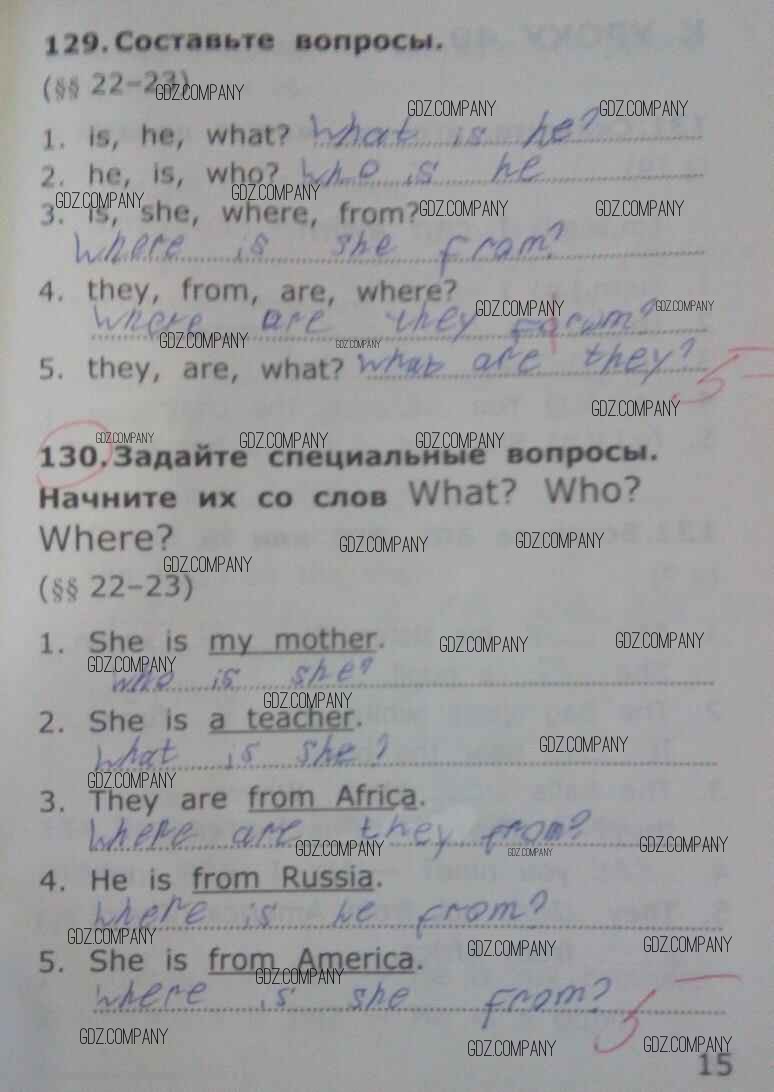 129. Составьте вопросы.
(§§ 22–23)
1. is, he, what? What is he?
2. he, is, who? Who is he
3. is, she, where, from?
Where is she from?
4. they, from, are, where?
Where are they from?
5. they, are, what? What are they?
5
130. Задайте специальные вопросы.
Начните их со слов What? Who?
Where?
(§§ 22–23)
1. She is my mother.
who is she?
2. She is a teacher.
What is she?
3. They are from Africa.
Where are they from?
4. He is from Russia.
Where is he from?
5. She is from America.
where is she from?
5
15
GDZ.COMPANY